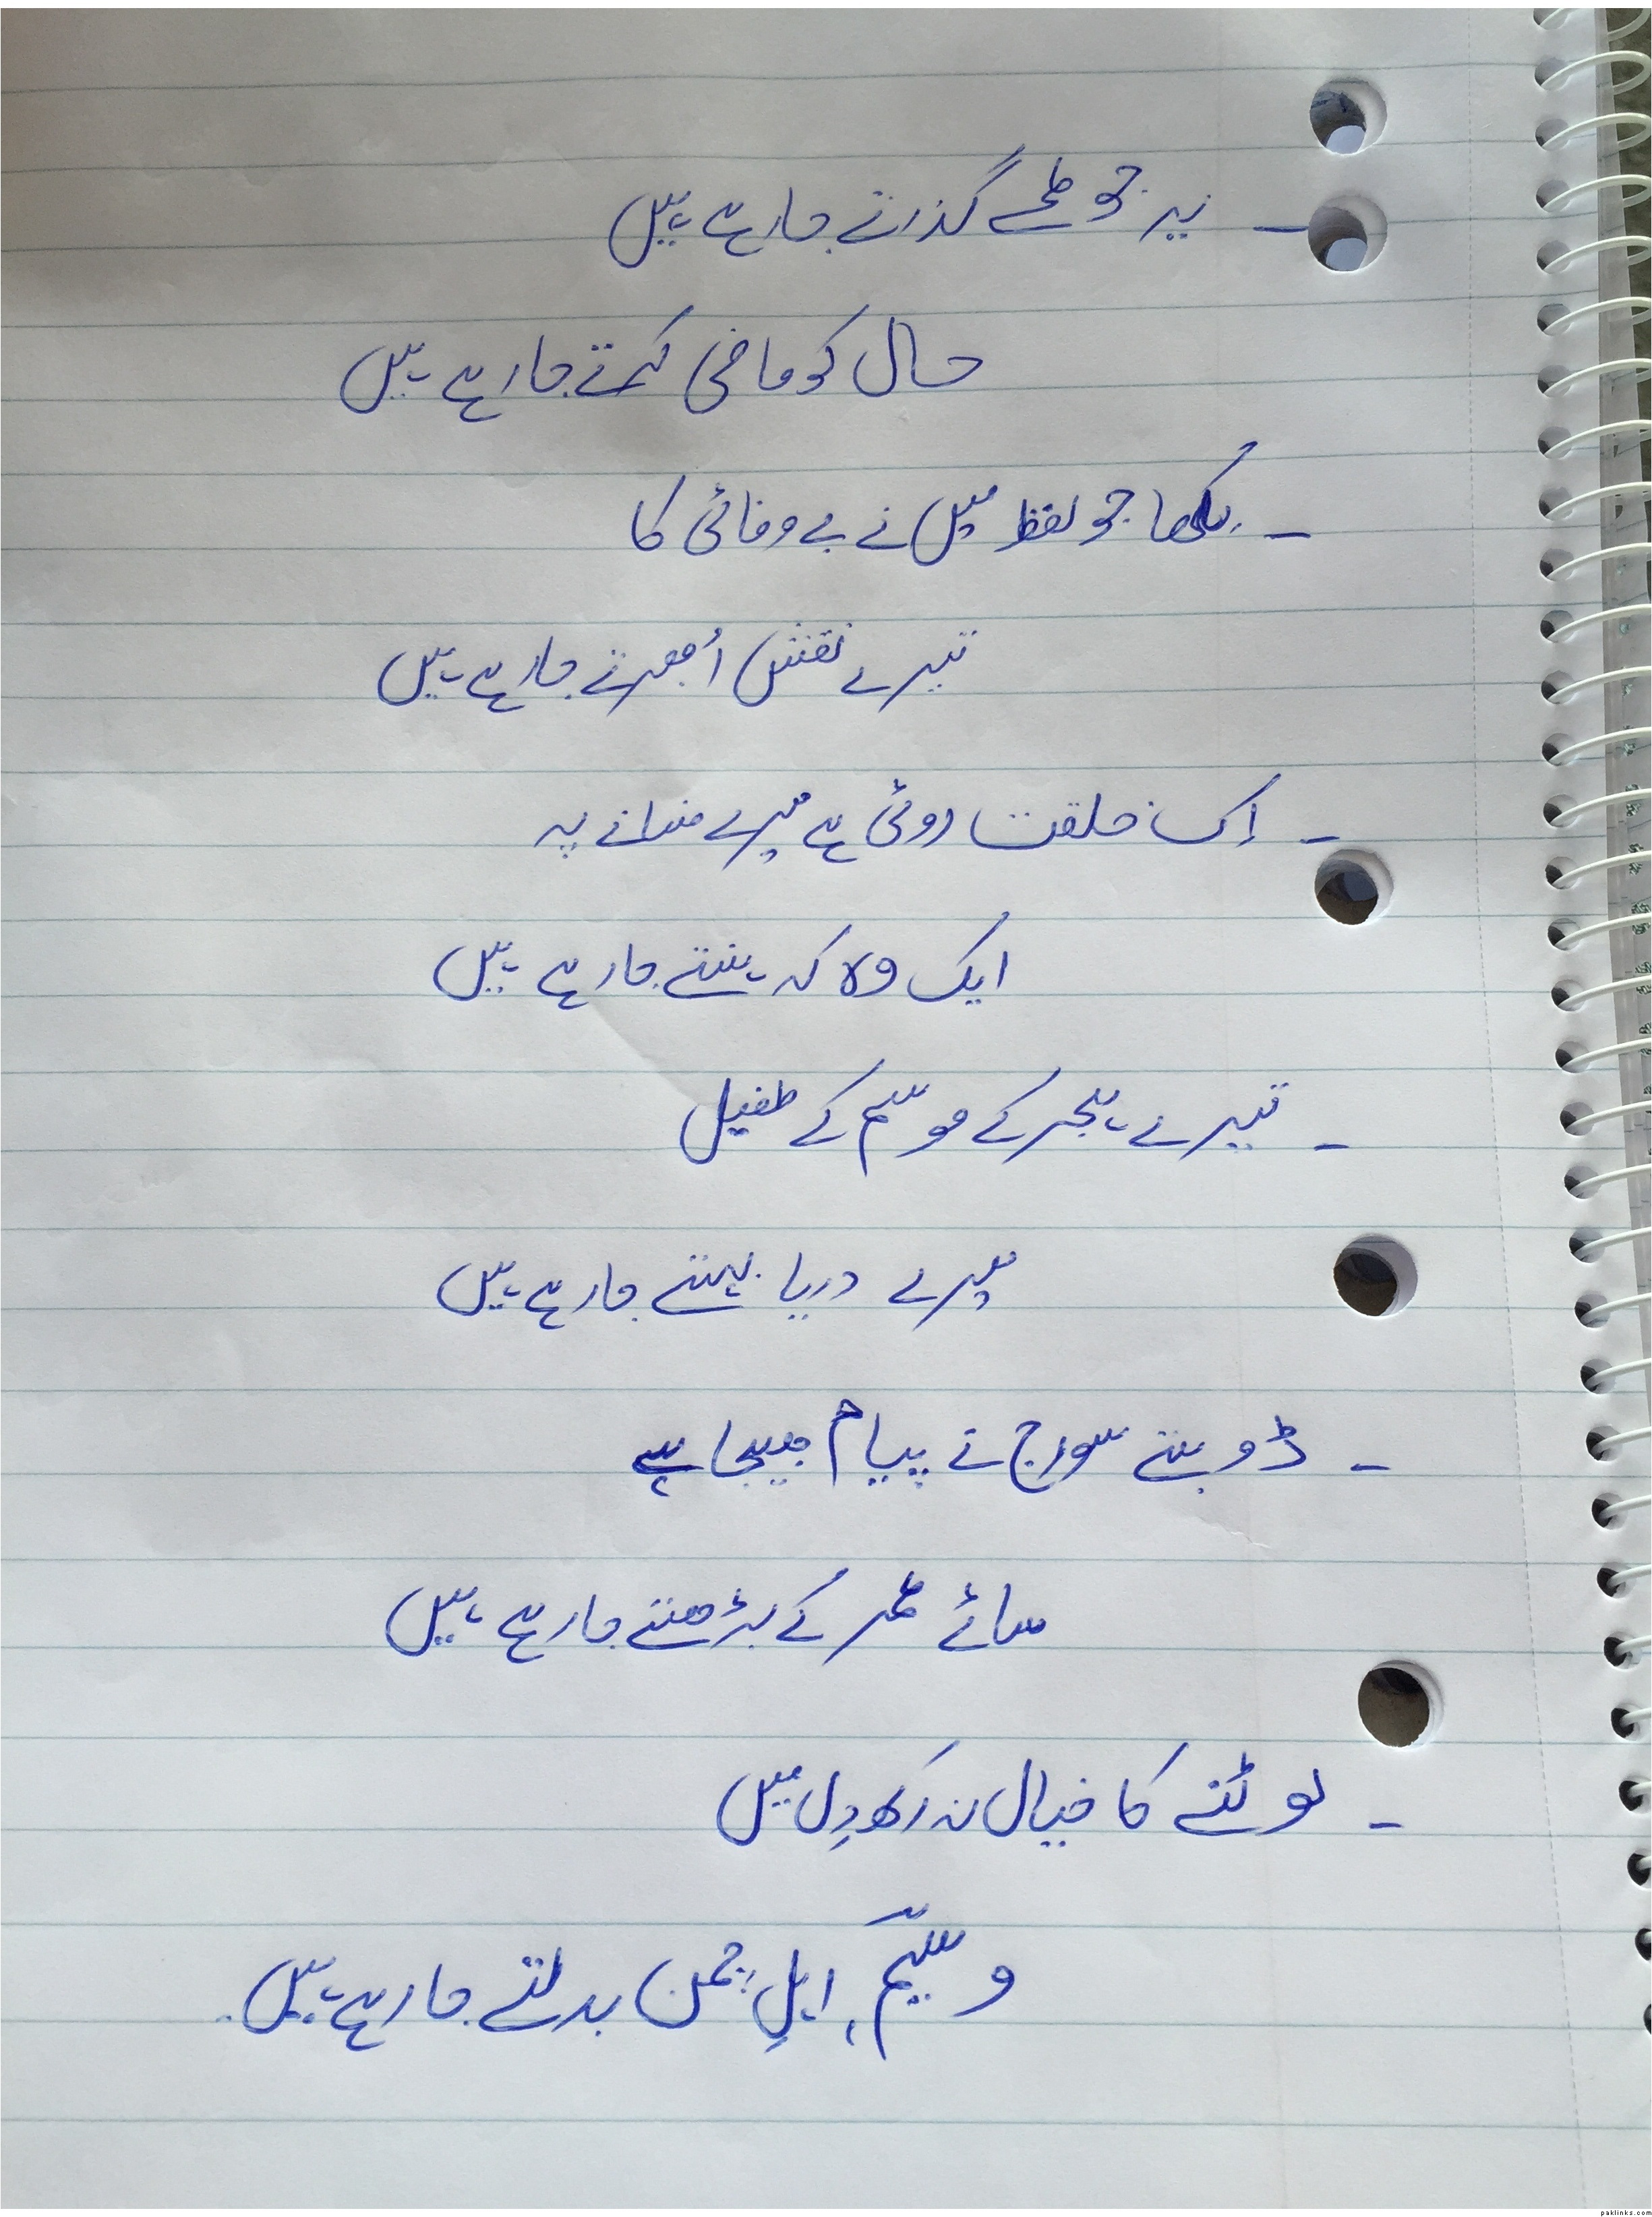 یہ جو لمحے گذرتے جا رہے ہیں
حال کو ماضی کرتے جا رہے ہیں
لکھا جو لفظ میں نے بے وفائی کا
تیرے نقش اُبھرتے جا رہے ہیں
اِک خلقت روئی ہے میرے فسانے پہ
ایک وہ کہ ہنستے جا رہے ہیں
تیرے ہجر کے موسم کے طفیل
میرے دریا بہتے جا رہے ہیں
ڈوبتے سورج نے پیام بھیجا ہے
سائے عمر کے بڑھتے جا رہے ہیں
لوٹنے کا خیال نہ رکھ دِل میں
وسیم، اہلِ چمن بدلتے جا رہے ہیں۔
paklinks.com